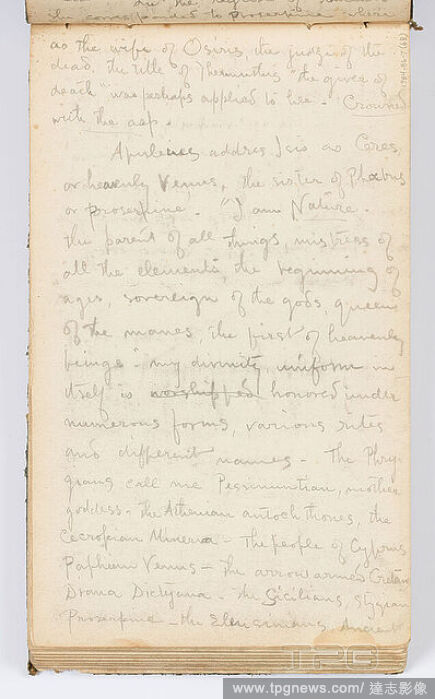 as the wife of Osiris, the judge of the
dead, the title of Thermuthis "the giver of
death" was perhaps applied to her - Crowned
with the asp.
Apuleius address Isis as Ceres,
or heavenly Venus, the sister of Phœbus
or Proserpine. "I am Nature.
the parent of all things, mistress of
all the elements, the beginning of
ages, sovereign of the gods, queen
of the manes, the first of heavenly
beings - my divinity, uniform in
itself is worshipped honored under
numerous forms, various rites
and different names - The Phry-
gians call me Pessinuntian, mother
goddess - the Athenian autochthones, the
Cecropian Minerva - The people of Cyprus
Paphian Venus - The arrow armed Cretans
Diana Dictynna - the Sicilians, stygian
Proserpine - the Eleusinians, Ancient
TPG
www.tpgnews.com / 達志影像